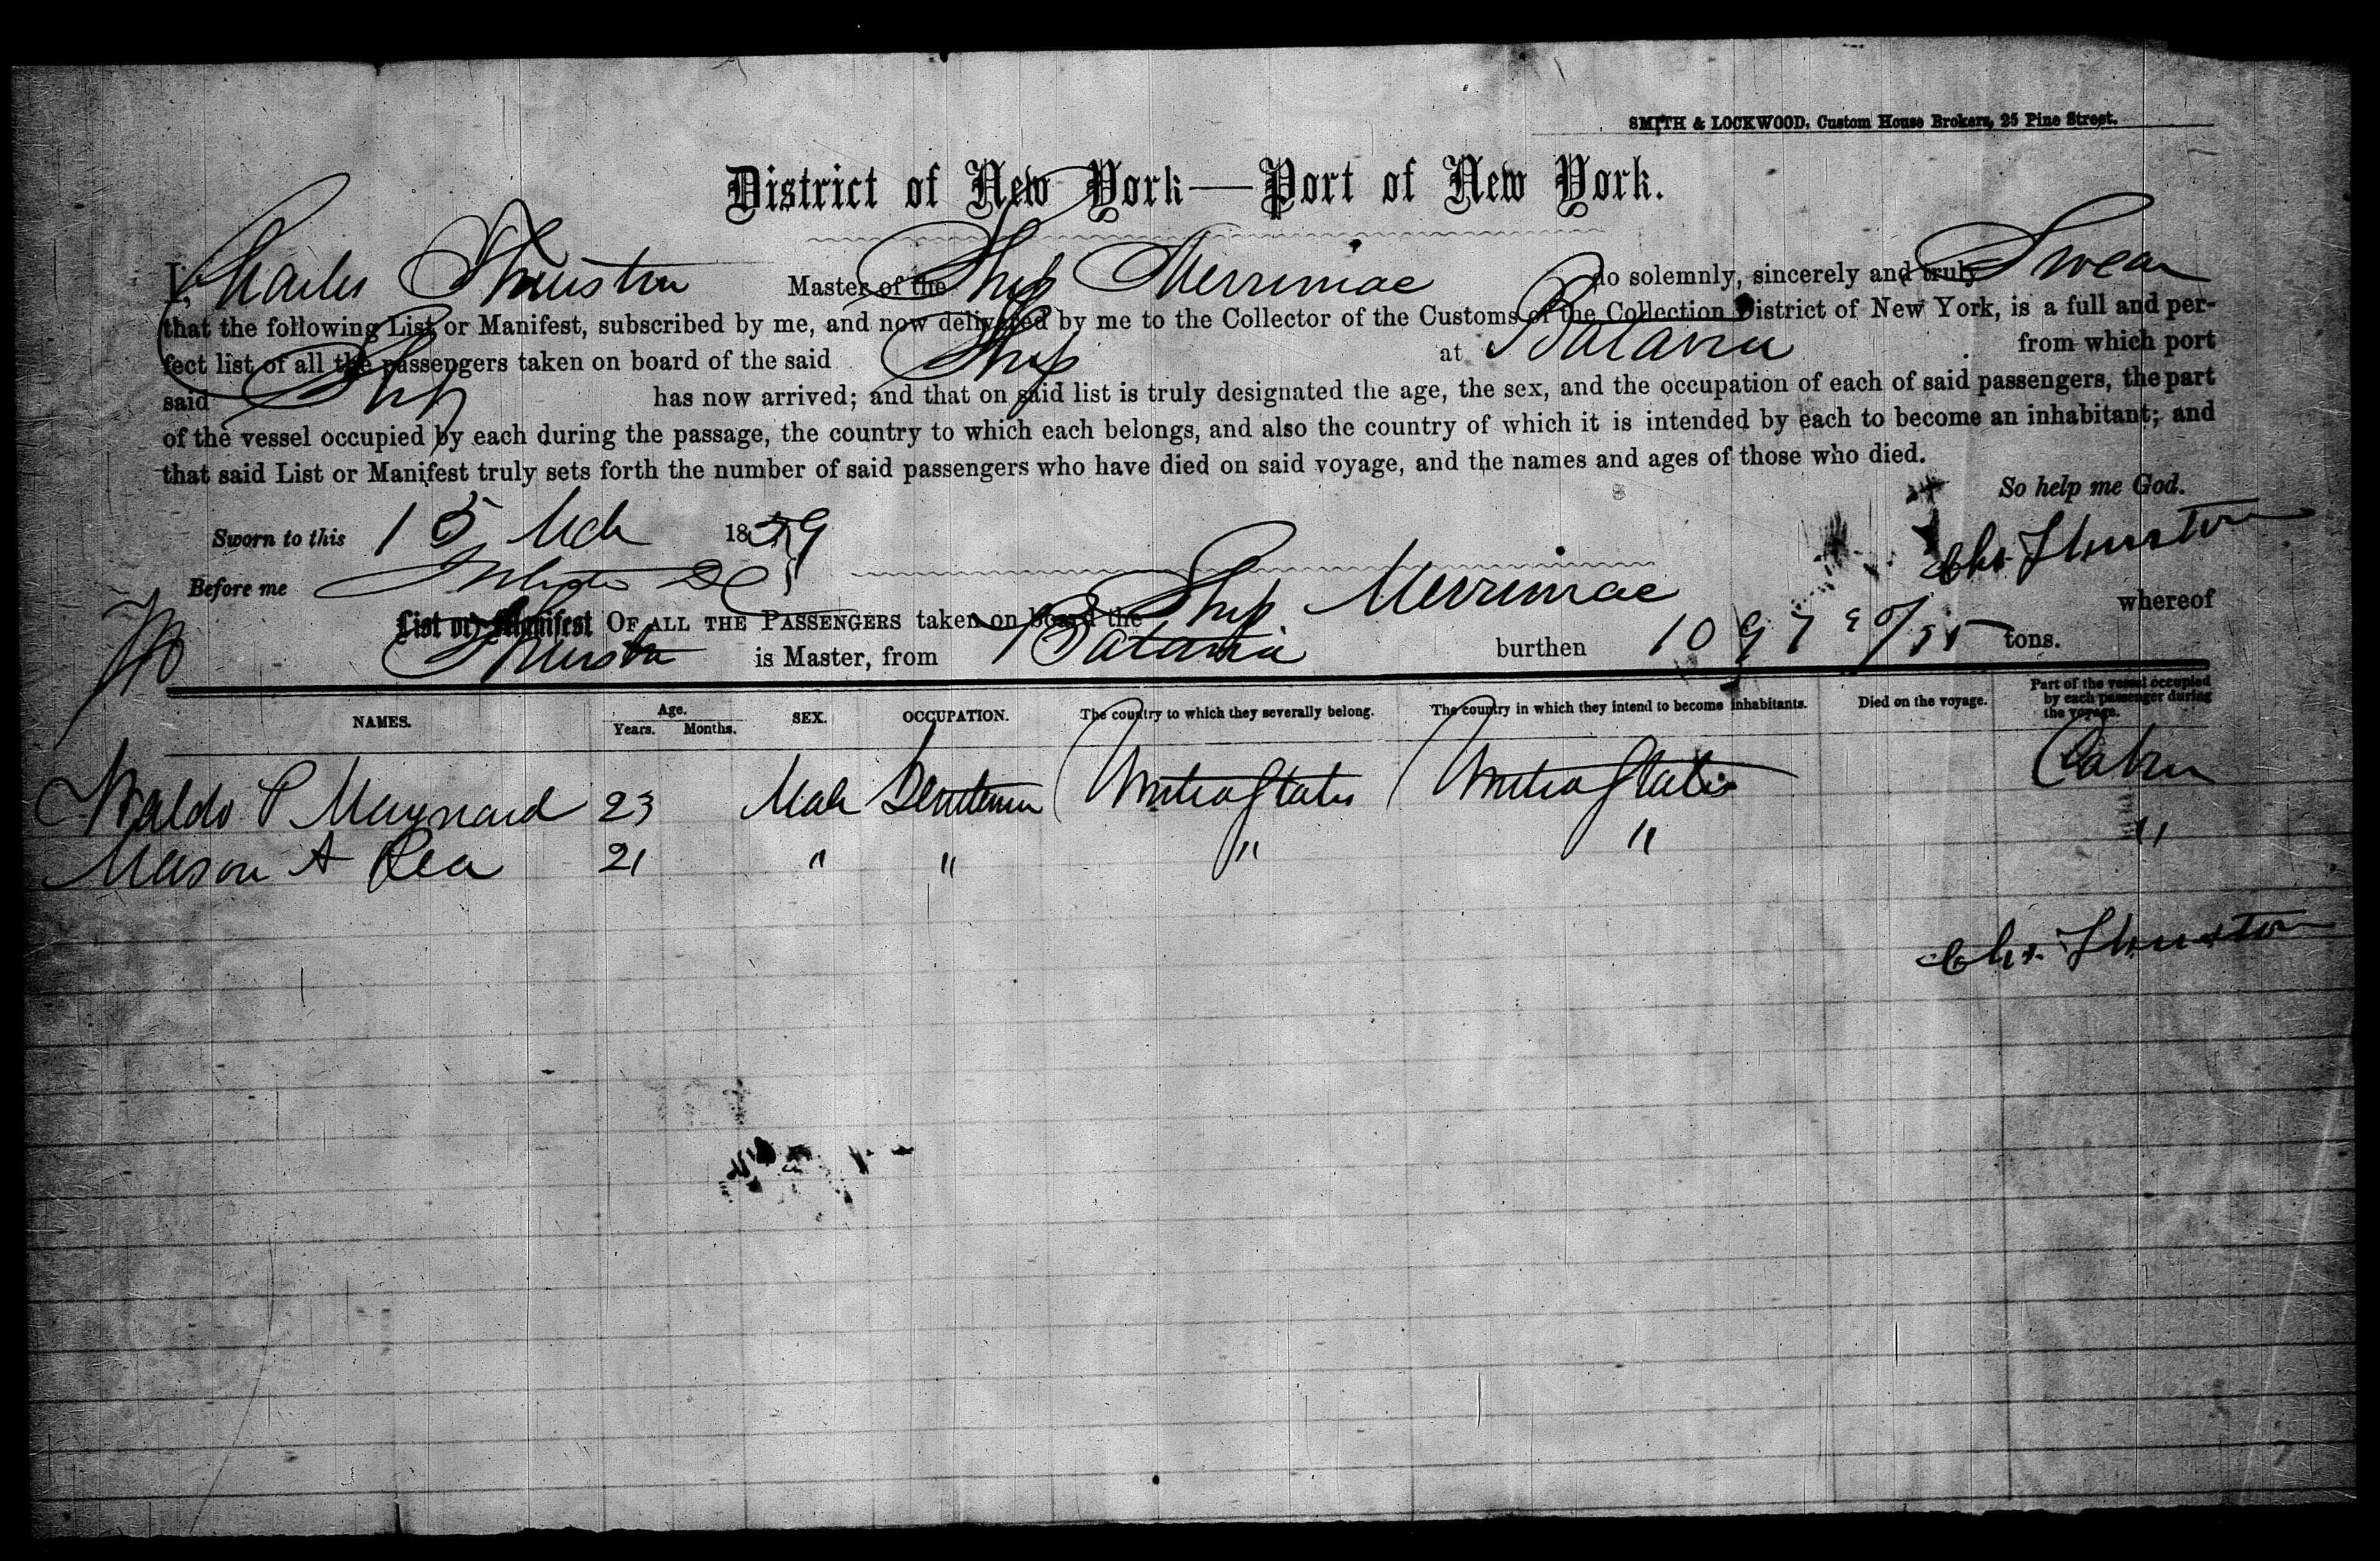 SMITH & LOCKWOOD, Custom House Brokers, 25 Pine Street.
District of New York—Port of New York.
I, Charles Thurston Master of the Ship Merrimac do solemnly, sincerely and truly Swear
that the following List or Manifest, subscribed by me, and now delivered by me to the Collector of the Customs of the Collection District of New York, is a full and per-
fect list of all the passengers taken on board of the said Ship at Batavia from which port
said Ship has now arrived; and that on said list is truly designated the age, the sex, and the occupation of each of said passengers, the part
of the vessel occupied by each during the passage, the country to which each belongs, and also the country of which it is intended by each to become an inhabitant; and
that said List or Manifest truly sets forth the number of said passengers who have died on said voyage, and the names and ages of those who died.
So help me God.
Sworn to this 15 Mch 1859
Chs Thurston
Before me
List or Manifest OF ALL THE PASSENGERS taken on board the Ship Merrimac whereof
Thurston is Master, from Batavia burthen 1097 tons.
NAMES. Age. Years. Months. SEX. OCCUPATION. The country to which they severally belong. The country in which they intend to become inhabitants. Died on the voyage. Part of the vessel occupied by each passenger during the voyage.
Waldo P Maynard 23 Male Gentleman United States United States Cabin
Mason A Rea 21 " " " " "
Chs. Thurston